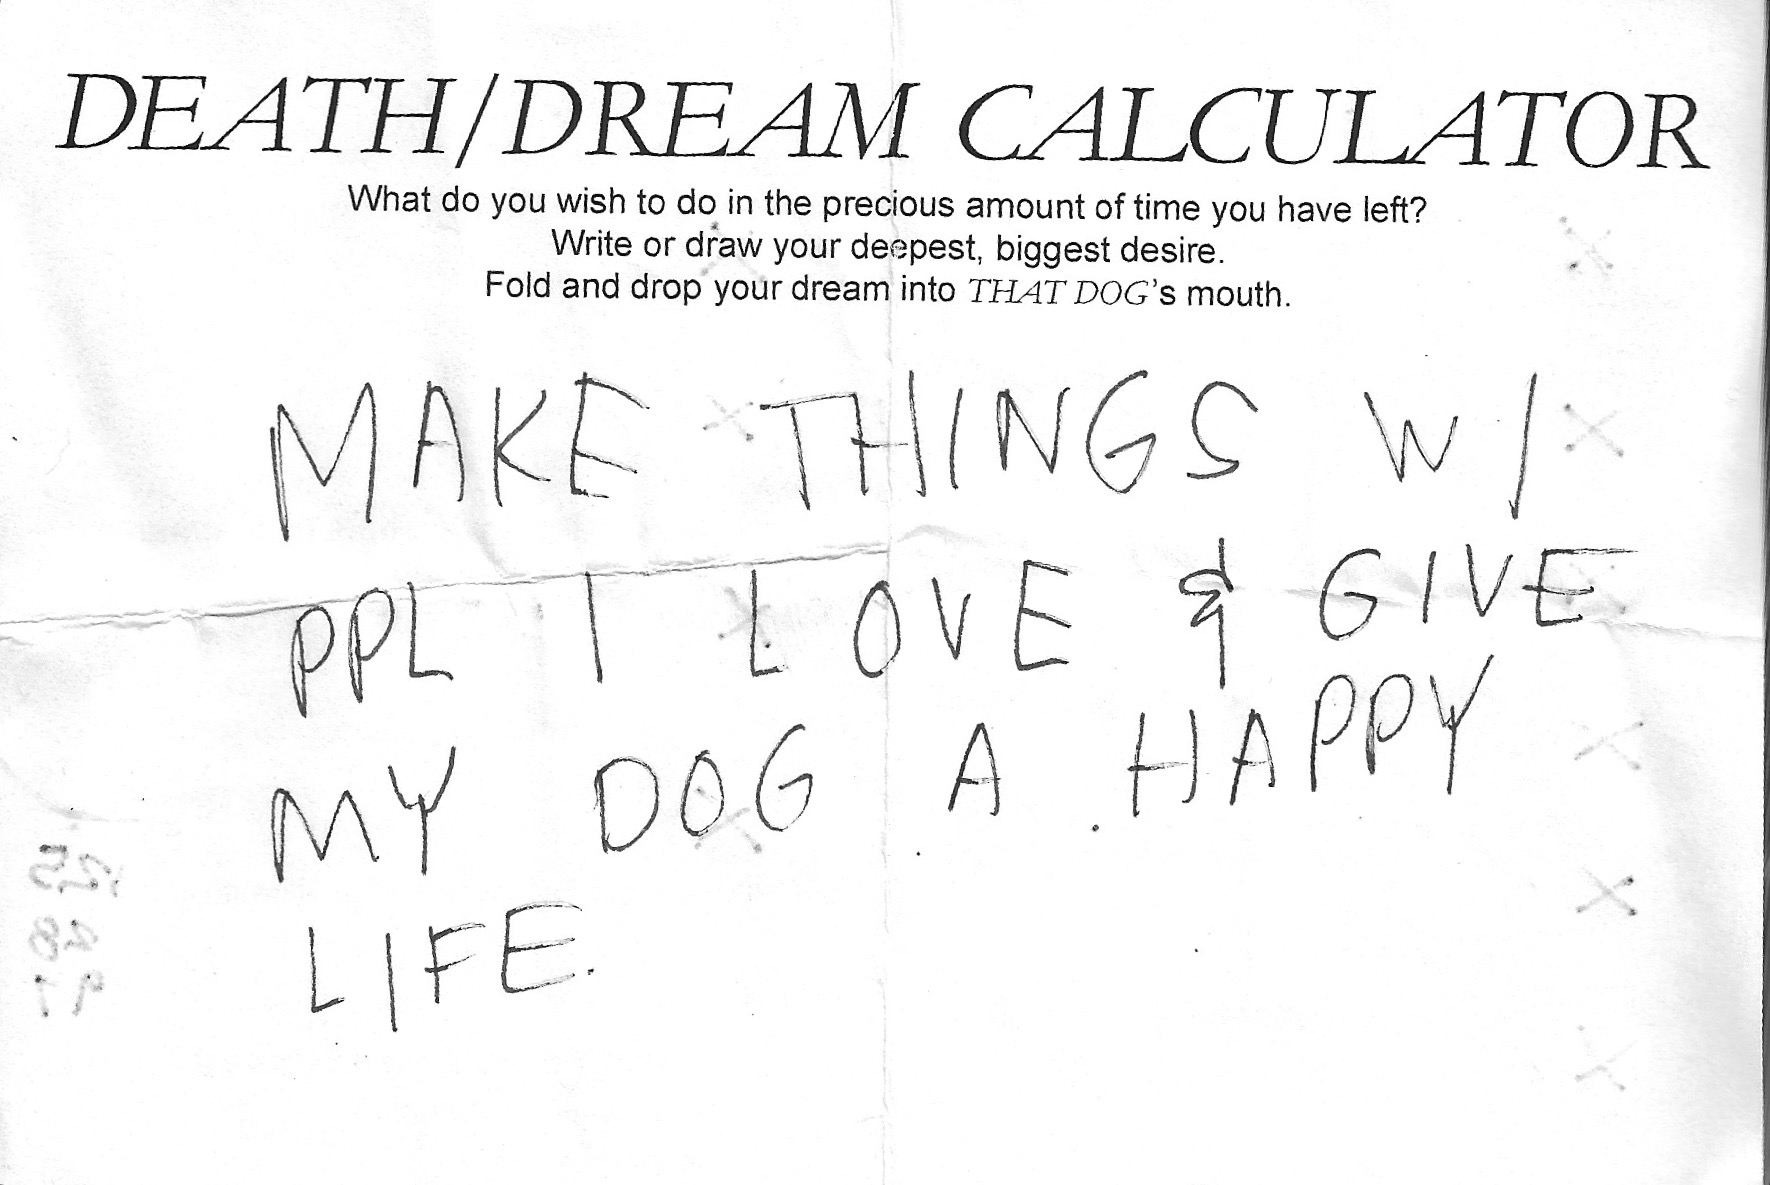 DEATH/DREAM CALCULATOR
What do you wish to do in the precious amount of time you have left?
Write or draw your deepest, biggest desire.
Fold and drop your dream into THAT DOG's mouth.
MAKE THINGS W/
PPL I LOVE & GIVE
MY DOG A HAPPY
LIFE.